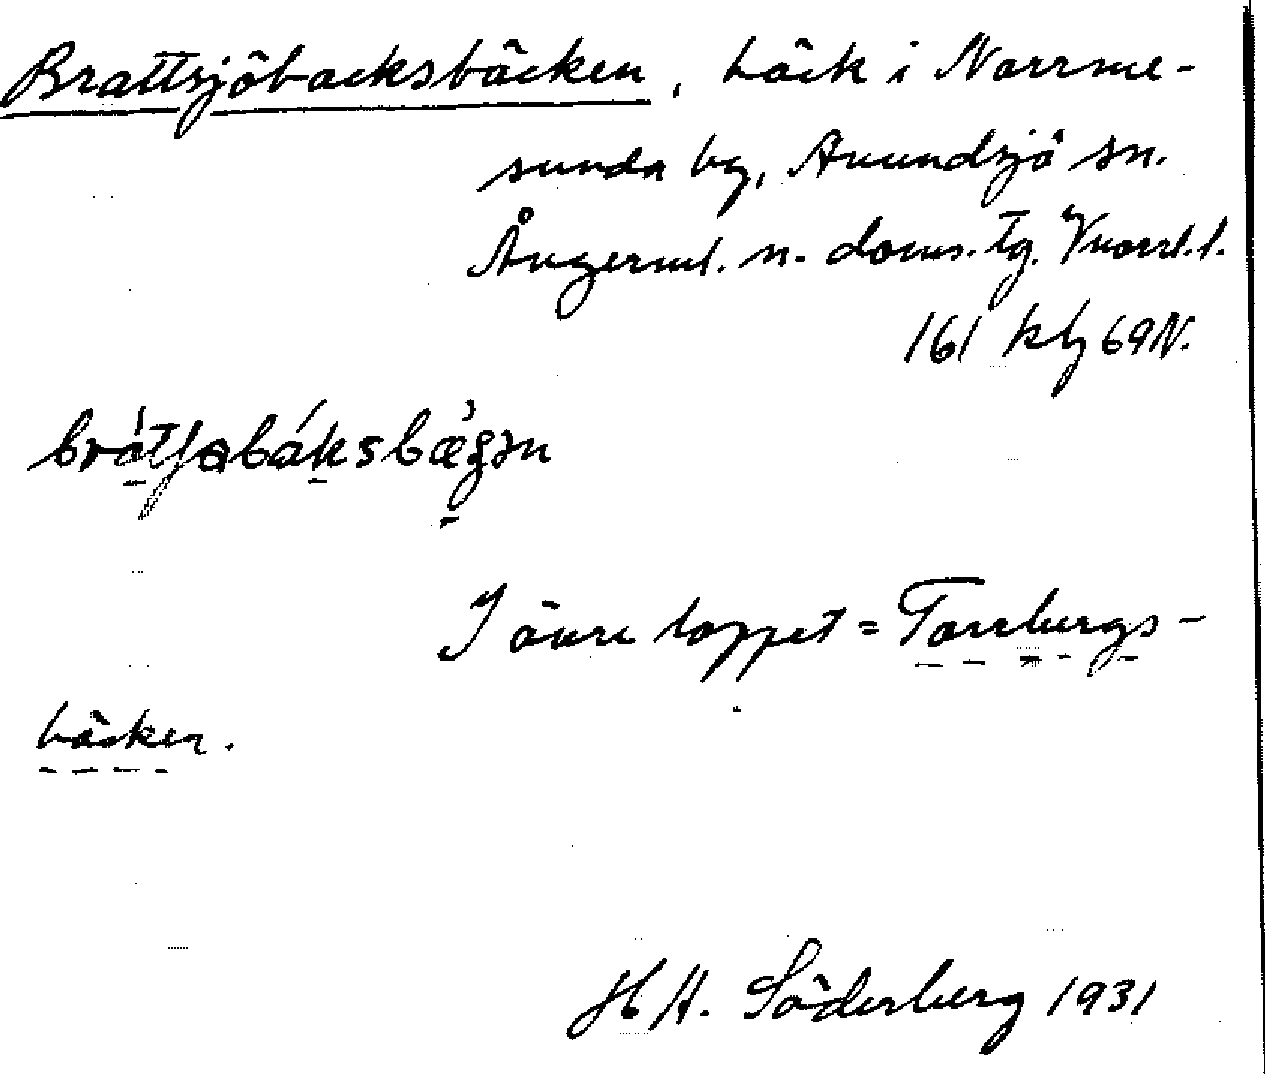 Brattsjöbacksbäcken, bäck i Norrme-
sunda by, Anundsjö sn.
Ångerml. n. doms. tg. Vnorrl. l.
161 kbg 69N.
I övre loppet = Torrbergs-
bäcken.
H A. Söderberg 1931